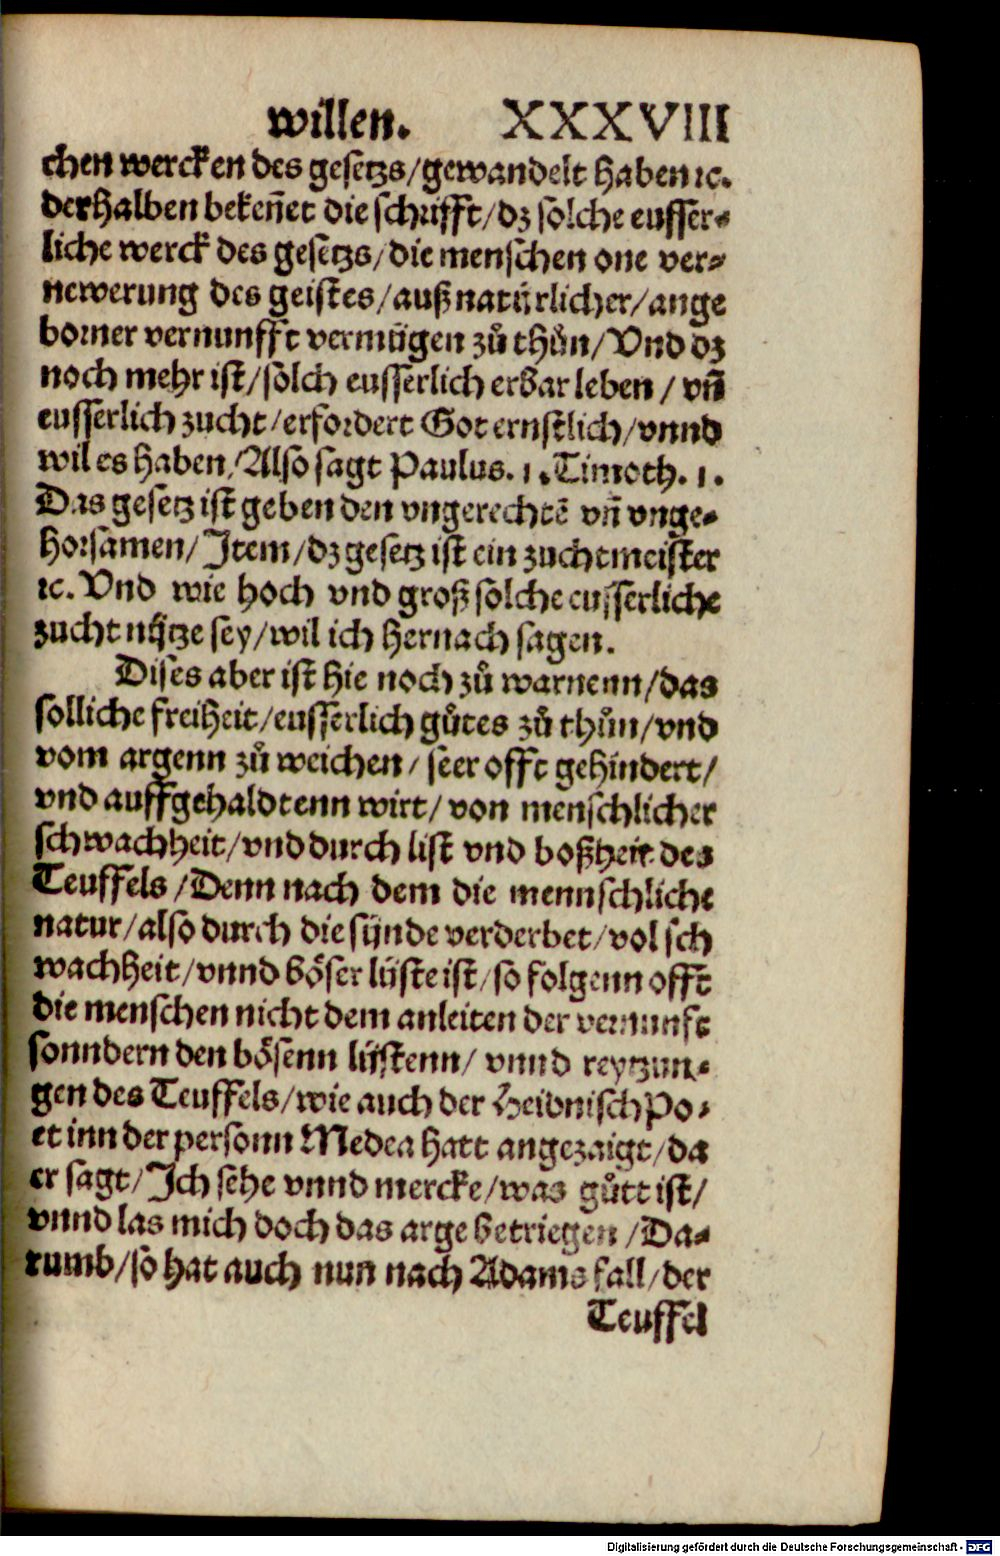 willen. XXXVIII
chen wercken des gesetzs/gewandelt haben ꝛc.
derhalben bekeñet die schrifft/dz solche eusser⸗
liche werck des gesetzs/die menschen one ver⸗
newerung des geistes/auß natürlicher/ange
borner vernunfft vermügen zů thůn/Vnd dz
noch mehr ist/sölch eusserlich erbar leben/vñ
eusserlich zucht/erfordert Got ernstlich/vnnd
wil es haben/Also sagt Paulus. 1. Timoth. 1.
Das gesetz ist geben den vngerechtẽ vñ vnge⸗
horsamen/Item/dz gesetz ist ein zuchtmeister
ꝛc. Vnd wie hoch vnd groß solche eusserliche
zucht nütze sey/wil ich hernach sagen.
Dises aber ist hie noch zů warnenn/das
solliche freiheit/eusserlich gůtes zů thůn/vnd
vom argenn zů weichen/seer offt gehindert/
vnd auffgehaldtenn wirt/von menschlicher
schwachheit/vnd durch list vnd boßheit des
Teuffels/Denn nach dem die mennschliche
natur/also durch die sünde verderbet/vol sch
wachheit/vnnd böser lüste ist/so folgenn offt
die menschen nicht dem anleiten der vernunft
sonndern den bösenn lüstenn/vnnd reytzun⸗
gen des Teuffels/wie auch der Heidnisch Po⸗
et inn der personn Medea hatt angezaigt/da
er sagt/Ich sehe vnnd mercke/was gůtt ist/
vnnd las mich doch das arge betriegen/Da⸗
rumb/so hat auch nun nach Adams fall/der
Teuffel
Digitalisierung gefördert durch die Deutsche Forschungsgemeinschaft - DFG